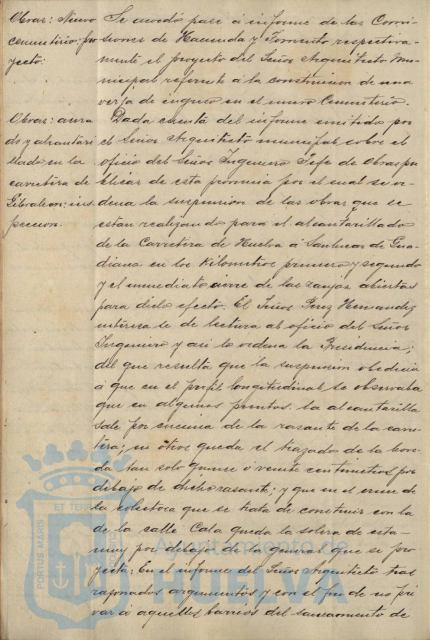 Obras: Nuevo
cementerio: pro
yecto:
Se acordó pase á informe de las Comi
siones de Hacienda y Fomento respectiva-
mente el proyecto del Señor Arquitecto Mu-
nicipal referente á la construcion de una
verja de ingreso en el nuevo Cementerio.
Obras:
do y alcantari
llado en la
carretera de
Gibraleon: ins
peccion.
Dada cuenta del informe emitido por
el Señor Arquitecto municipal sobre el
oficio del Señor Ingeniero Jefe de Obras pu
blicas de esta provincia por el cual se or
dena la suspension de las obras que se
estan realizando para el alcantarillado
de la Carretera de Huelva á Sanlucar de Gua-
diana en los kilometros primero y segundo
y el inmediato cierre de las zanjas abiertas
para dicho efecto. El Señor Perez Hernandez
interesa se dé lectura al oficio del Señor
Ingeniero y asi lo ordena la Presidencia;
del que resulta que la suspension obedecia
á que en el perfil longitudinal se observaba
que en algunos puntos la alcantarilla
sale por encima de la rasante de la carre
tera; en otros queda el trazado de la
tan solo quince ó veinte centimetros por
debajo de dicha rasante; y que en el cruce de
la colectora que se trata de construir con la
de la calle Cala queda la solera de esta
muy por debajo de la general que se pro
yecta. En el informe del Señor Arquitecto tras
razonados argumentos y con el fin de no pri
var á aquellos barrios del saneamiento de
Ayuntamiento de
HUELVA
PORTUS MARIS ET TERRAE